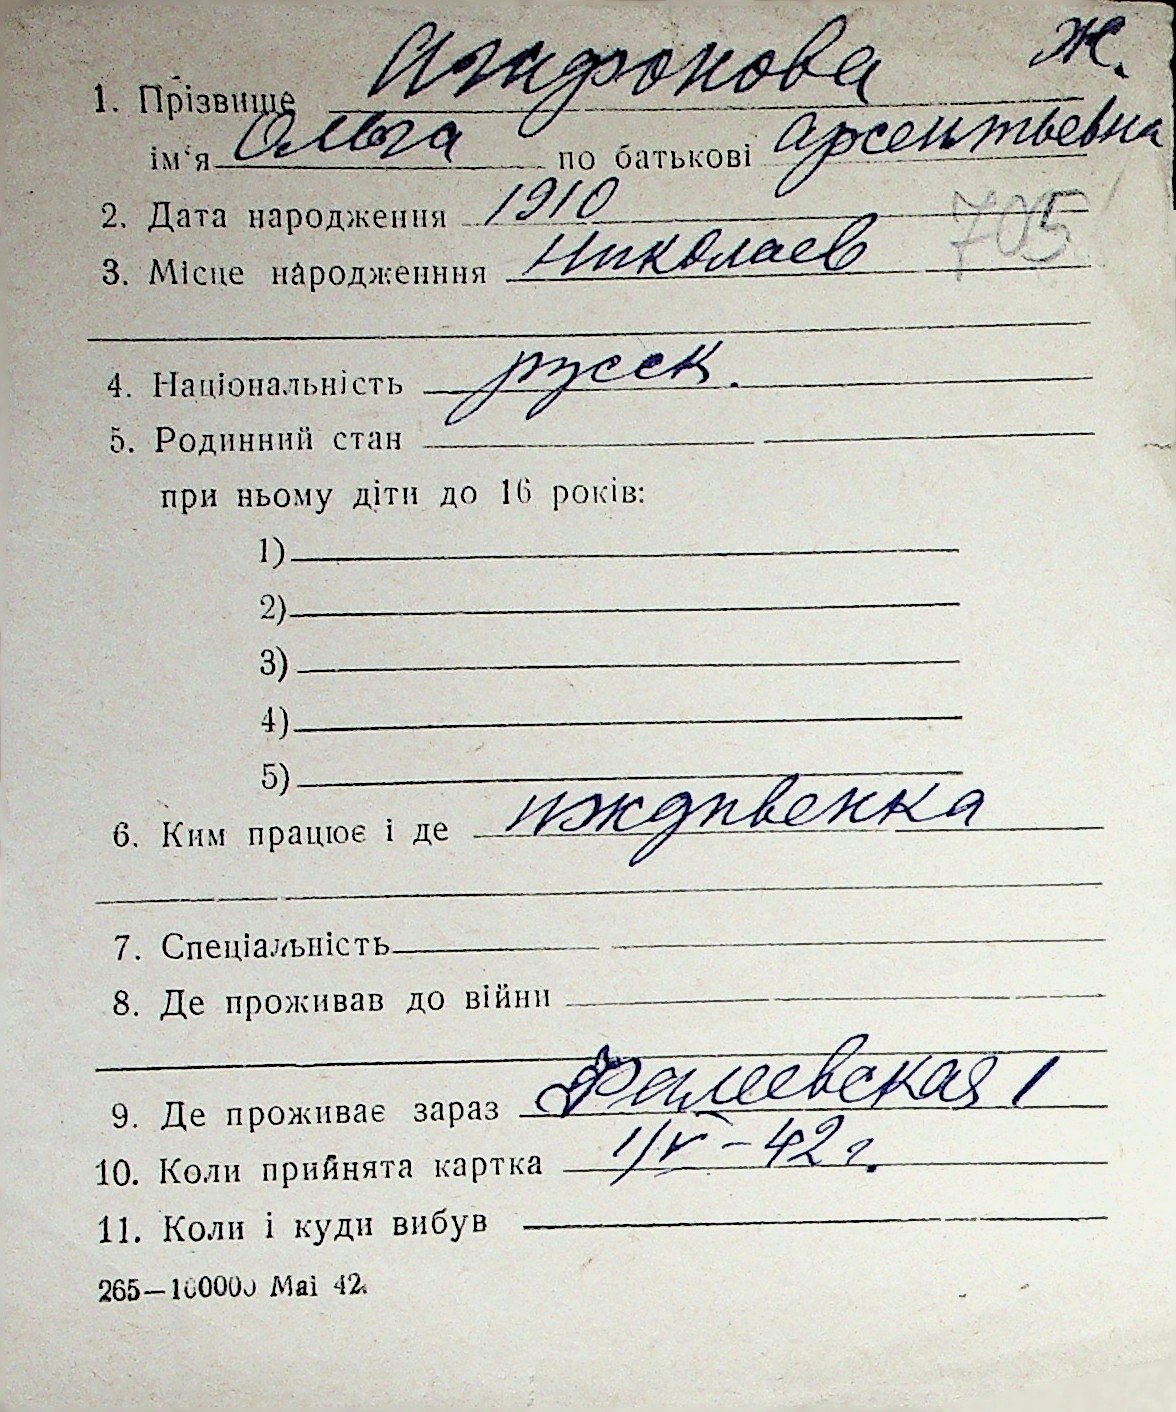 Ж.
1. Прізвище Анфронова
ім'я Ольга по батькові Арсентьевна
2. Дата народження 1910
705
3. Місце народженння Николаев
4. Національність русск.
5. Родинний стан
при ньому діти до 16 років:
1)
2)
3)
4)
5)
6. Ким працює і де иждивенка
7. Спеціальність
8. Де проживав до війни
9. Де проживає зараз Фалеевская 1
10. Коли прийнята картка 1/V-42 г.
11. Коли і куди вибув
265—100000 Mai 42.